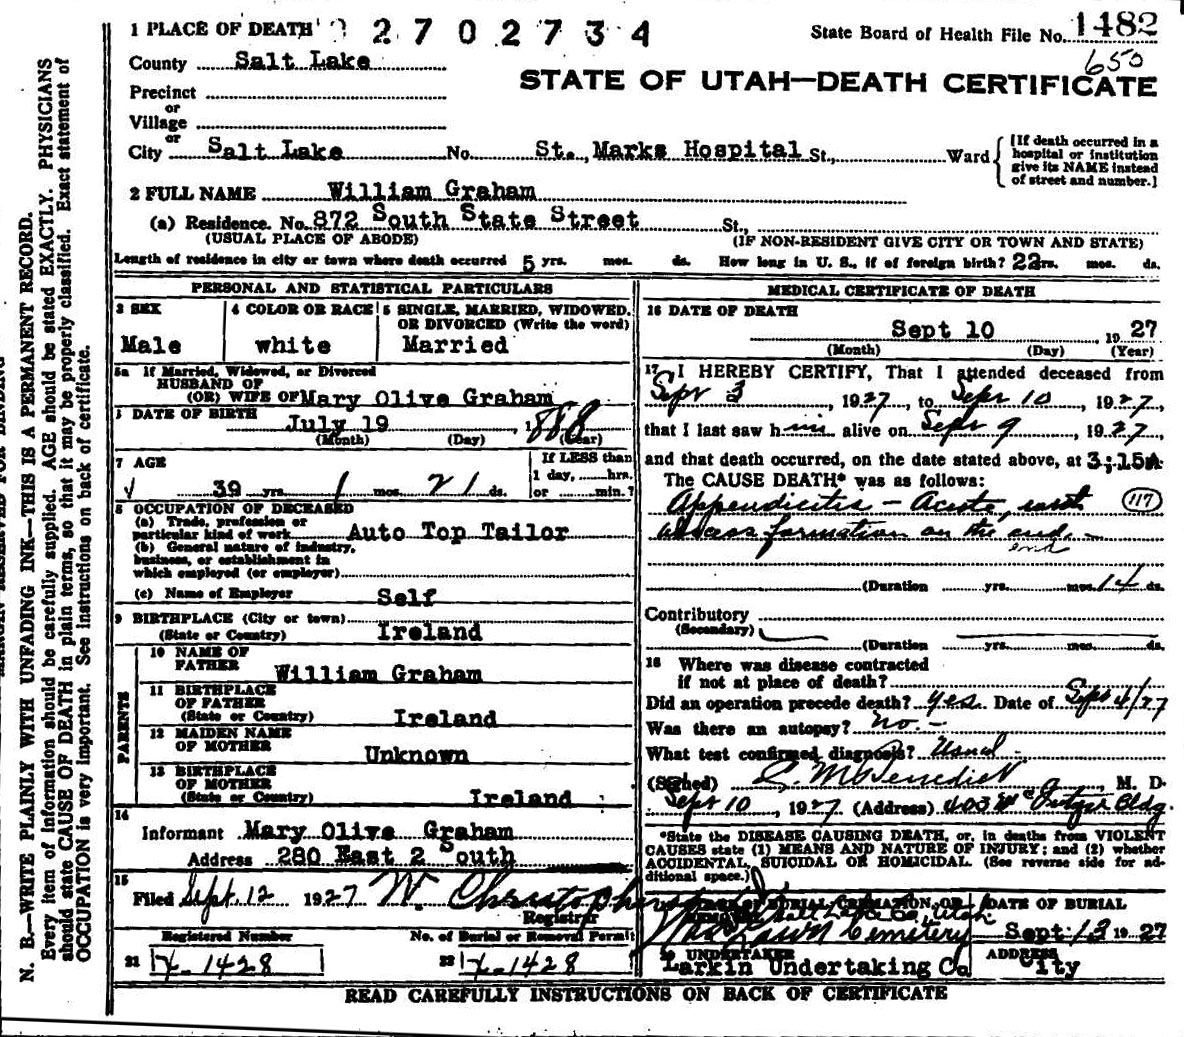 1 PLACE OF DEATH 2702734
State Board of Health File No. 1482
650
County Salt Lake
STATE OF UTAH—DEATH CERTIFICATE
Precinct
or
Village
or
City Salt Lake No. St., Marks Hospital St., Ward
[If death occurred in a
hospital or institution
give its NAME instead
of street and number.]
2 FULL NAME William Graham
(a) Residence. No. 872 South State Street St.,
(USUAL PLACE OF ABODE) (IF NON-RESIDENT GIVE CITY OR TOWN AND STATE)
Length of residence in city or town where death occurred 5 yrs. mos. ds. How long in U. S., if of foreign birth? 22rs. mos. ds.
PERSONAL AND STATISTICAL PARTICULARS
3 SEX 4 COLOR OR RACE 5 SINGLE, MARRIED, WIDOWED,
OR DIVORCED (Write the word)
Male white Married
5a If Married, Widowed, or Divorced
HUSBAND OF
(OR) WIFE OF Mary Olive Graham
DATE OF BIRTH
July 19 , 1888
(Month) (Day) (Year)
7 AGE If LESS than
1 day, hrs.
39 yrs. 1 mos. 21 ds. or min.?
8 OCCUPATION OF DECEASED
(a) Trade, profession or
particular kind of work Auto Top Tailor
(b) General nature of industry,
business, or establishment in
which employed (or employer)
(c) Name of Employer Self
9 BIRTHPLACE (City or town)
(State or Country) Ireland
PARENTS
10 NAME OF
FATHER William Graham
11 BIRTHPLACE
OF FATHER
(State or Country) Ireland
12 MAIDEN NAME
OF MOTHER Unknown
13 BIRTHPLACE
OF MOTHER
(State or Country) Ireland
14
Informant Mary Olive Graham
Address 280 East 2 South
15
Filed Sept. 12 1927 W. Christophers
Registrar
Registered Number No. of Burial or Removal Permit
21 1428 22 1428
MEDICAL CERTIFICATE OF DEATH
16 DATE OF DEATH
Sept 10 19 27
(Month) (Day) (Year)
17 I HEREBY CERTIFY, That I attended deceased from
Sept 3, 1927, to Sept 10, 1927,
that I last saw him alive on Sept 9, 1927,
and that death occurred, on the date stated above, at 3:15A
The CAUSE DEATH* was as follows:
Appendicitis - Acute, with (117)
abscess formation on the end. -
end
(Duration yrs. mos. 14 ds.
Contributory
(Secondary)
(Duration yrs. mos. ds.
18 Where was disease contracted
if not at place of death?
Did an operation precede death? yes Date of Sept 4/27
Was there an autopsy? no. -
What test confirmed diagnosis? Usual -
(Signed) Benedict, M. D.
Sept 10, 1927 (Address) 403 Bldg.
*State the DISEASE CAUSING DEATH, or, in deaths from VIOLENT
CAUSES state (1) MEANS AND NATURE OF INJURY; and (2) whether
ACCIDENTAL, SUICIDAL OR HOMICIDAL. (See reverse side for ad-
ditional space.)
PLACE OF BURIAL, CREMATION, OR DATE OF BURIAL
Salt Lake Co, Utah
Lawn Cemetery Sept 13 19 27
20 UNDERTAKER ADDRESS
Larkin Undertaking Co City
READ CAREFULLY INSTRUCTIONS ON BACK OF CERTIFICATE
N. B.—WRITE PLAINLY WITH UNFADING INK—THIS IS A PERMANENT RECORD.
Every item of information should be carefully supplied. AGE should be stated EXACTLY. PHYSICIANS
should state CAUSE OF DEATH in plain terms, so that it may be properly classified. Exact statement of
OCCUPATION is very important. See instructions on back of certificate.